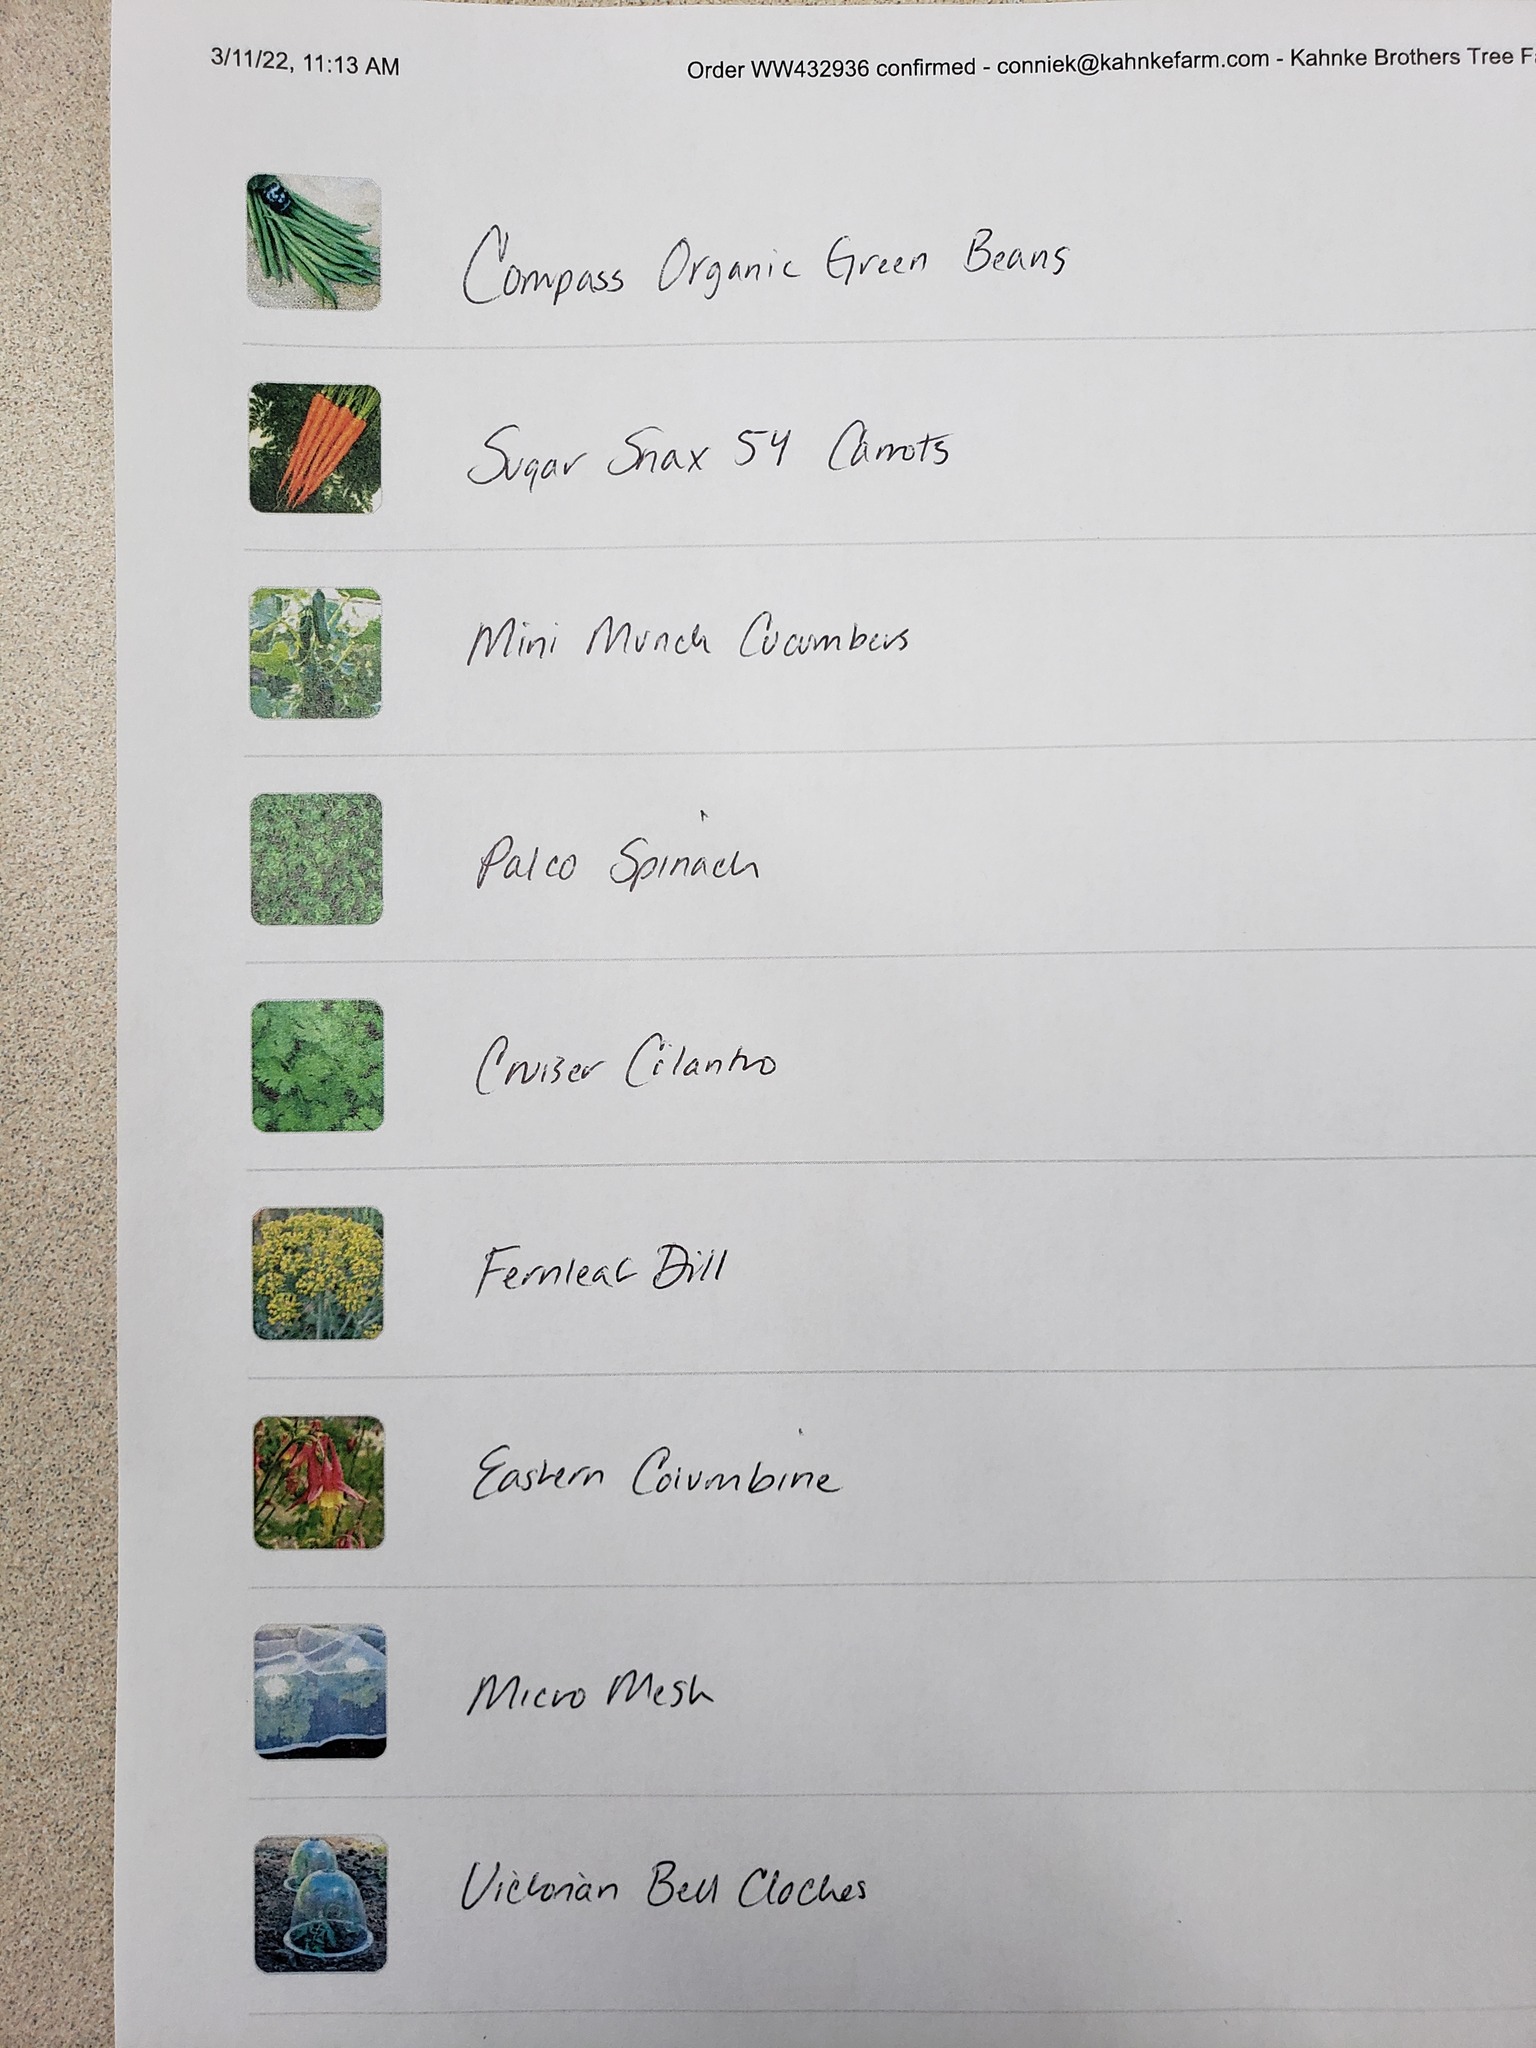 3/11/22, 11:13 AM
Order WW432936 confirmed - conniek@kahnkefarm.com - Kahnke Brothers Tree Fa
Compass Organic Green Beans
Sugar Snax 54 Carrots
Mini Munch Cucumbers
Palco Spinach
Cruiser Cilantro
Fernleaf Dill
Eastern Columbine
Micro Mesh
Victorian Bell Cloches